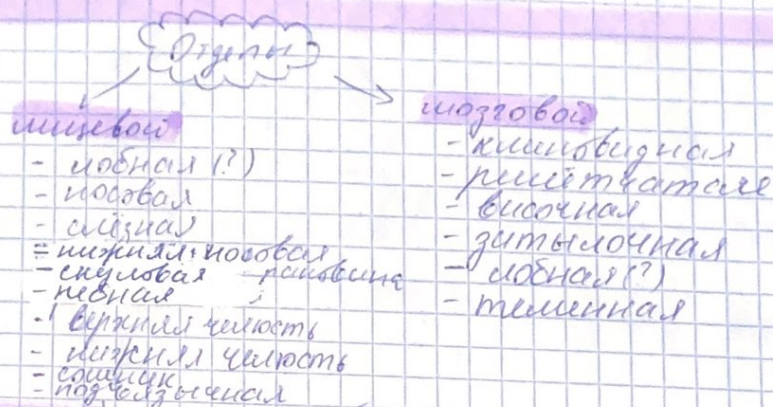 Отделы
лицевой
- лобная (?)
- носовая
- слёзная
- нижняя носовая
раковина
- скуловая
- нёбная
- верхняя челюсть
- нижняя челюсть
- сошник
- подъязычная
мозговой
- клиновидная
- решётчатая
- височная
- затылочная
- лобная (?)
- теменная